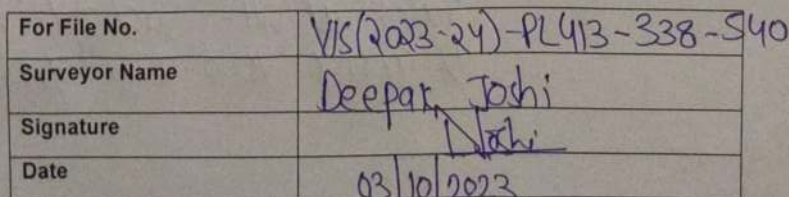 For File No. VIS(2023-24)-PL413-338-540
Surveyor Name Deepak Joshi
Signature Joshi
Date 03/10/2023